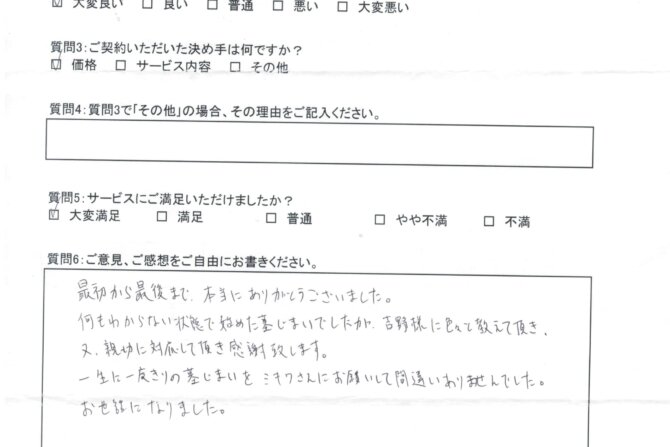 ☑ 大変良い □ 良い □ 普通 □ 悪い □ 大変悪い
質問3:ご契約いただいた決め手は何ですか?
☑ 価格 □ サービス内容 □ その他
質問4:質問3で「その他」の場合、その理由をご記入ください。
質問5:サービスにご満足いただけましたか?
☑ 大変満足 □ 満足 □ 普通 □ やや不満 □ 不満
質問6:ご意見、ご感想をご自由にお書きください。
最初から最後まで、本当にありがとうございました。
何もわからない状態で始めた墓じまいでしたが、吉野様に色々と教えて頂き、
又、親切に対応して頂き感謝致します。
一生に一度きりの墓じまいをミキワさんにお願いして間違いありませんでした。
お世話になりました。